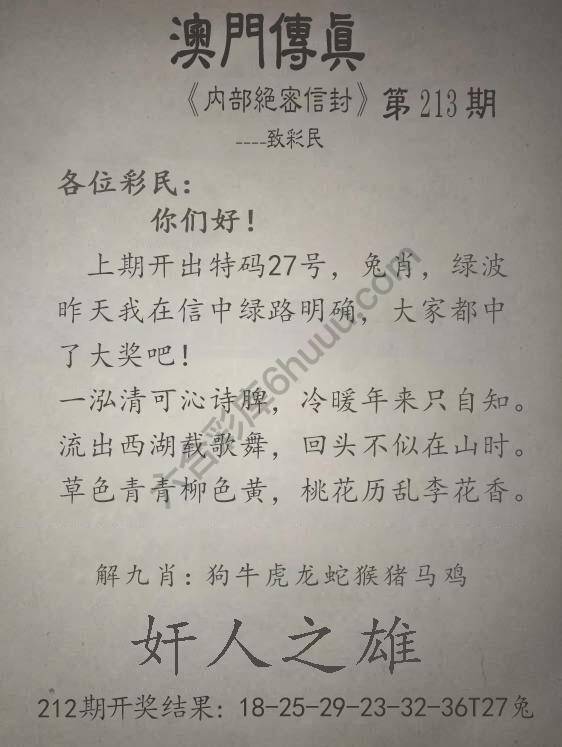 澳門傳真
《内部絕密信封》第213期
----致彩民
各位彩民：
你们好！
上期开出特码27号，兔肖，绿波
昨天我在信中绿路明确，大家都中
了大奖吧！
一泓清可沁诗脾，冷暖年来只自知。
流出西湖载歌舞，回头不似在山时。
草色青青柳色黄，桃花历乱李花香。
解九肖：狗牛虎龙蛇猴猪马鸡
奸人之雄
212期开奖结果：18-25-29-23-32-36T27兔
六合彩库6huuu.com